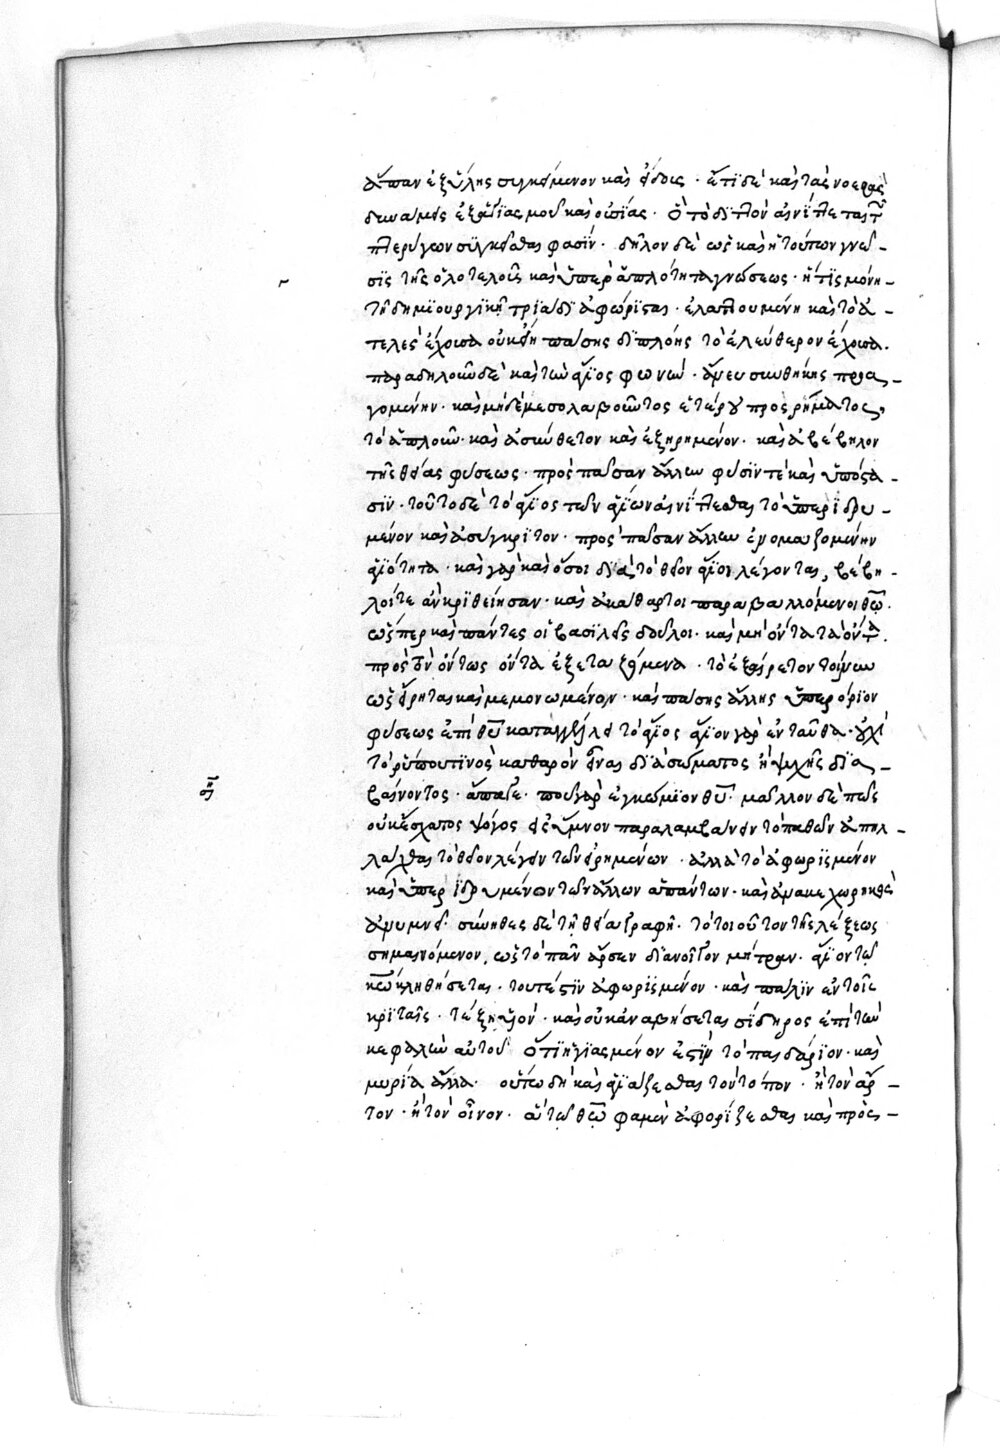 ἅπαν ἐξ ὕλης συγκείμενον καὶ εἴδους · ἔτι δὲ καὶ τὰς νοερὰς
δυνάμεις ἐξ οὐσίας καὶ · ὃ τὸ διπλοῦν αἰνίττεται τῶν
πτερύγων συγκεῖσθαι φασίν · δῆλον δὲ ὡς καὶ ἡ τούτων γνῶ-
σις τῆς ὁλοτελοῦς καὶ ὑπὲρ ἁπλότητα γνώσεως · ἥτις μόνη-
τῇ δημιουργικῇ τριάδι ἀφώρισται · ἐλαττουμένη καὶ τὸ ἀ-
τελὲς ἔχουσα οὐκ πάσης διπλόης τὸ ἐλεύθερον ἔχουσα.
παραδηλοῦν δὲ καὶ τὴν ἅγιος φωνὴν · ἄνευ συνθήκης προα-
γομένην · καὶ μηδὲ μεσολαβοῦντος ἑτέρου προσρήματος,
τὸ ἁπλοῦν · καὶ ἀσύνθετον καὶ ἐξῃρημένον · καὶ ἀβέβηλον
τῆς θείας φύσεως · πρὸς πᾶσαν ἄλλην φύσιν τὲ καὶ ὑπόστα-
σιν · τοῦτο δὲ τὸ ἅγιος τῶν ἁγίων αἰνίττεσθαι τὸ ὑπεριδρυ-
μένον καὶ ἀσύγκριτον · πρὸς πᾶσαν ἄλλην ὀνομαζομένην
ἁγιότητα · καὶ γὰρ καὶ ὅσοι διὰ τὸ θεῖον ἅγιοι λέγονται, βέβη-
λοί τε ἂν κριθείησαν · καὶ ἀκάθαρτοι παραβαλλόμενοι θῶ ·
ὥσπερ καὶ πάντες οἱ βασιλεῖς δοῦλοι · καὶ μὴ ὄντα τὰ ὄντα.
πρὸς τὸν ὄντως ὄντα ἐξεταζόμενα · τὸ ἐξαίρετον τοίνυν
ὡς εἴρηται καὶ μεμονωμένον · καὶ πάσης ἄλλης ὑπερόριον
φύσεως ἐπὶ θυ καταγγέλλει τὸ ἅγιος ἅγιον γὰρ ἐνταῦθα · οὐχὶ
τὸ ῥύπου τινὸς καθαρὸν εἶναι διὰ σώματος ἢ ψυχῆς δια-
βαίνοντος · ἄπαγε · ποῦ γὰρ ἐγκώμιον θυ · μᾶλλον δὲ πῶς
οὐκ ἔσχατος ψόγος εἰς ὕμνον παραλαμβάνειν τὸ παθῶν ἀπηλ-
λάχθαι τὸ θεῖον λέγειν τῶν εἰρημένων · ἀλλὰ τὸ ἀφωρισμένον
καὶ ὑπεριδρυμένον τῶν ἄλλων ἁπάντων · καὶ ἀνακεχωρηκὸς
ἀνυμνεῖ · σύνηθες δὲ τῇ θεία γραφῇ · τὸ τοιοῦτον τῆς λέξεως
σημαινόμενον, ὡς τὸ πᾶν ἄρσεν διανοῖγον μήτραν · ἅγιον τῷ
κω κληθήσεται · τουτέστιν ἀφωρισμένον · καὶ πάλιν ἐν τοῖς
κριταῖς · καὶ οὐκ ἀναβήσεται σίδηρος ἐπὶ τὴν
κεφαλὴν αὐτοῦ ὅτι ἡγιασμένον ἐστὶν τὸ παιδάριον · καὶ
μυρία ἄλλα · οὕτω δὴ καὶ ἁγιάζεσθαι τὸν τόπον · ἢ τὸν ἄρ-
τον · ἢ τὸν οἶνον · αὐτῷ θῶ φαμὲν ἀφορίζεσθαι καὶ πρὸς-